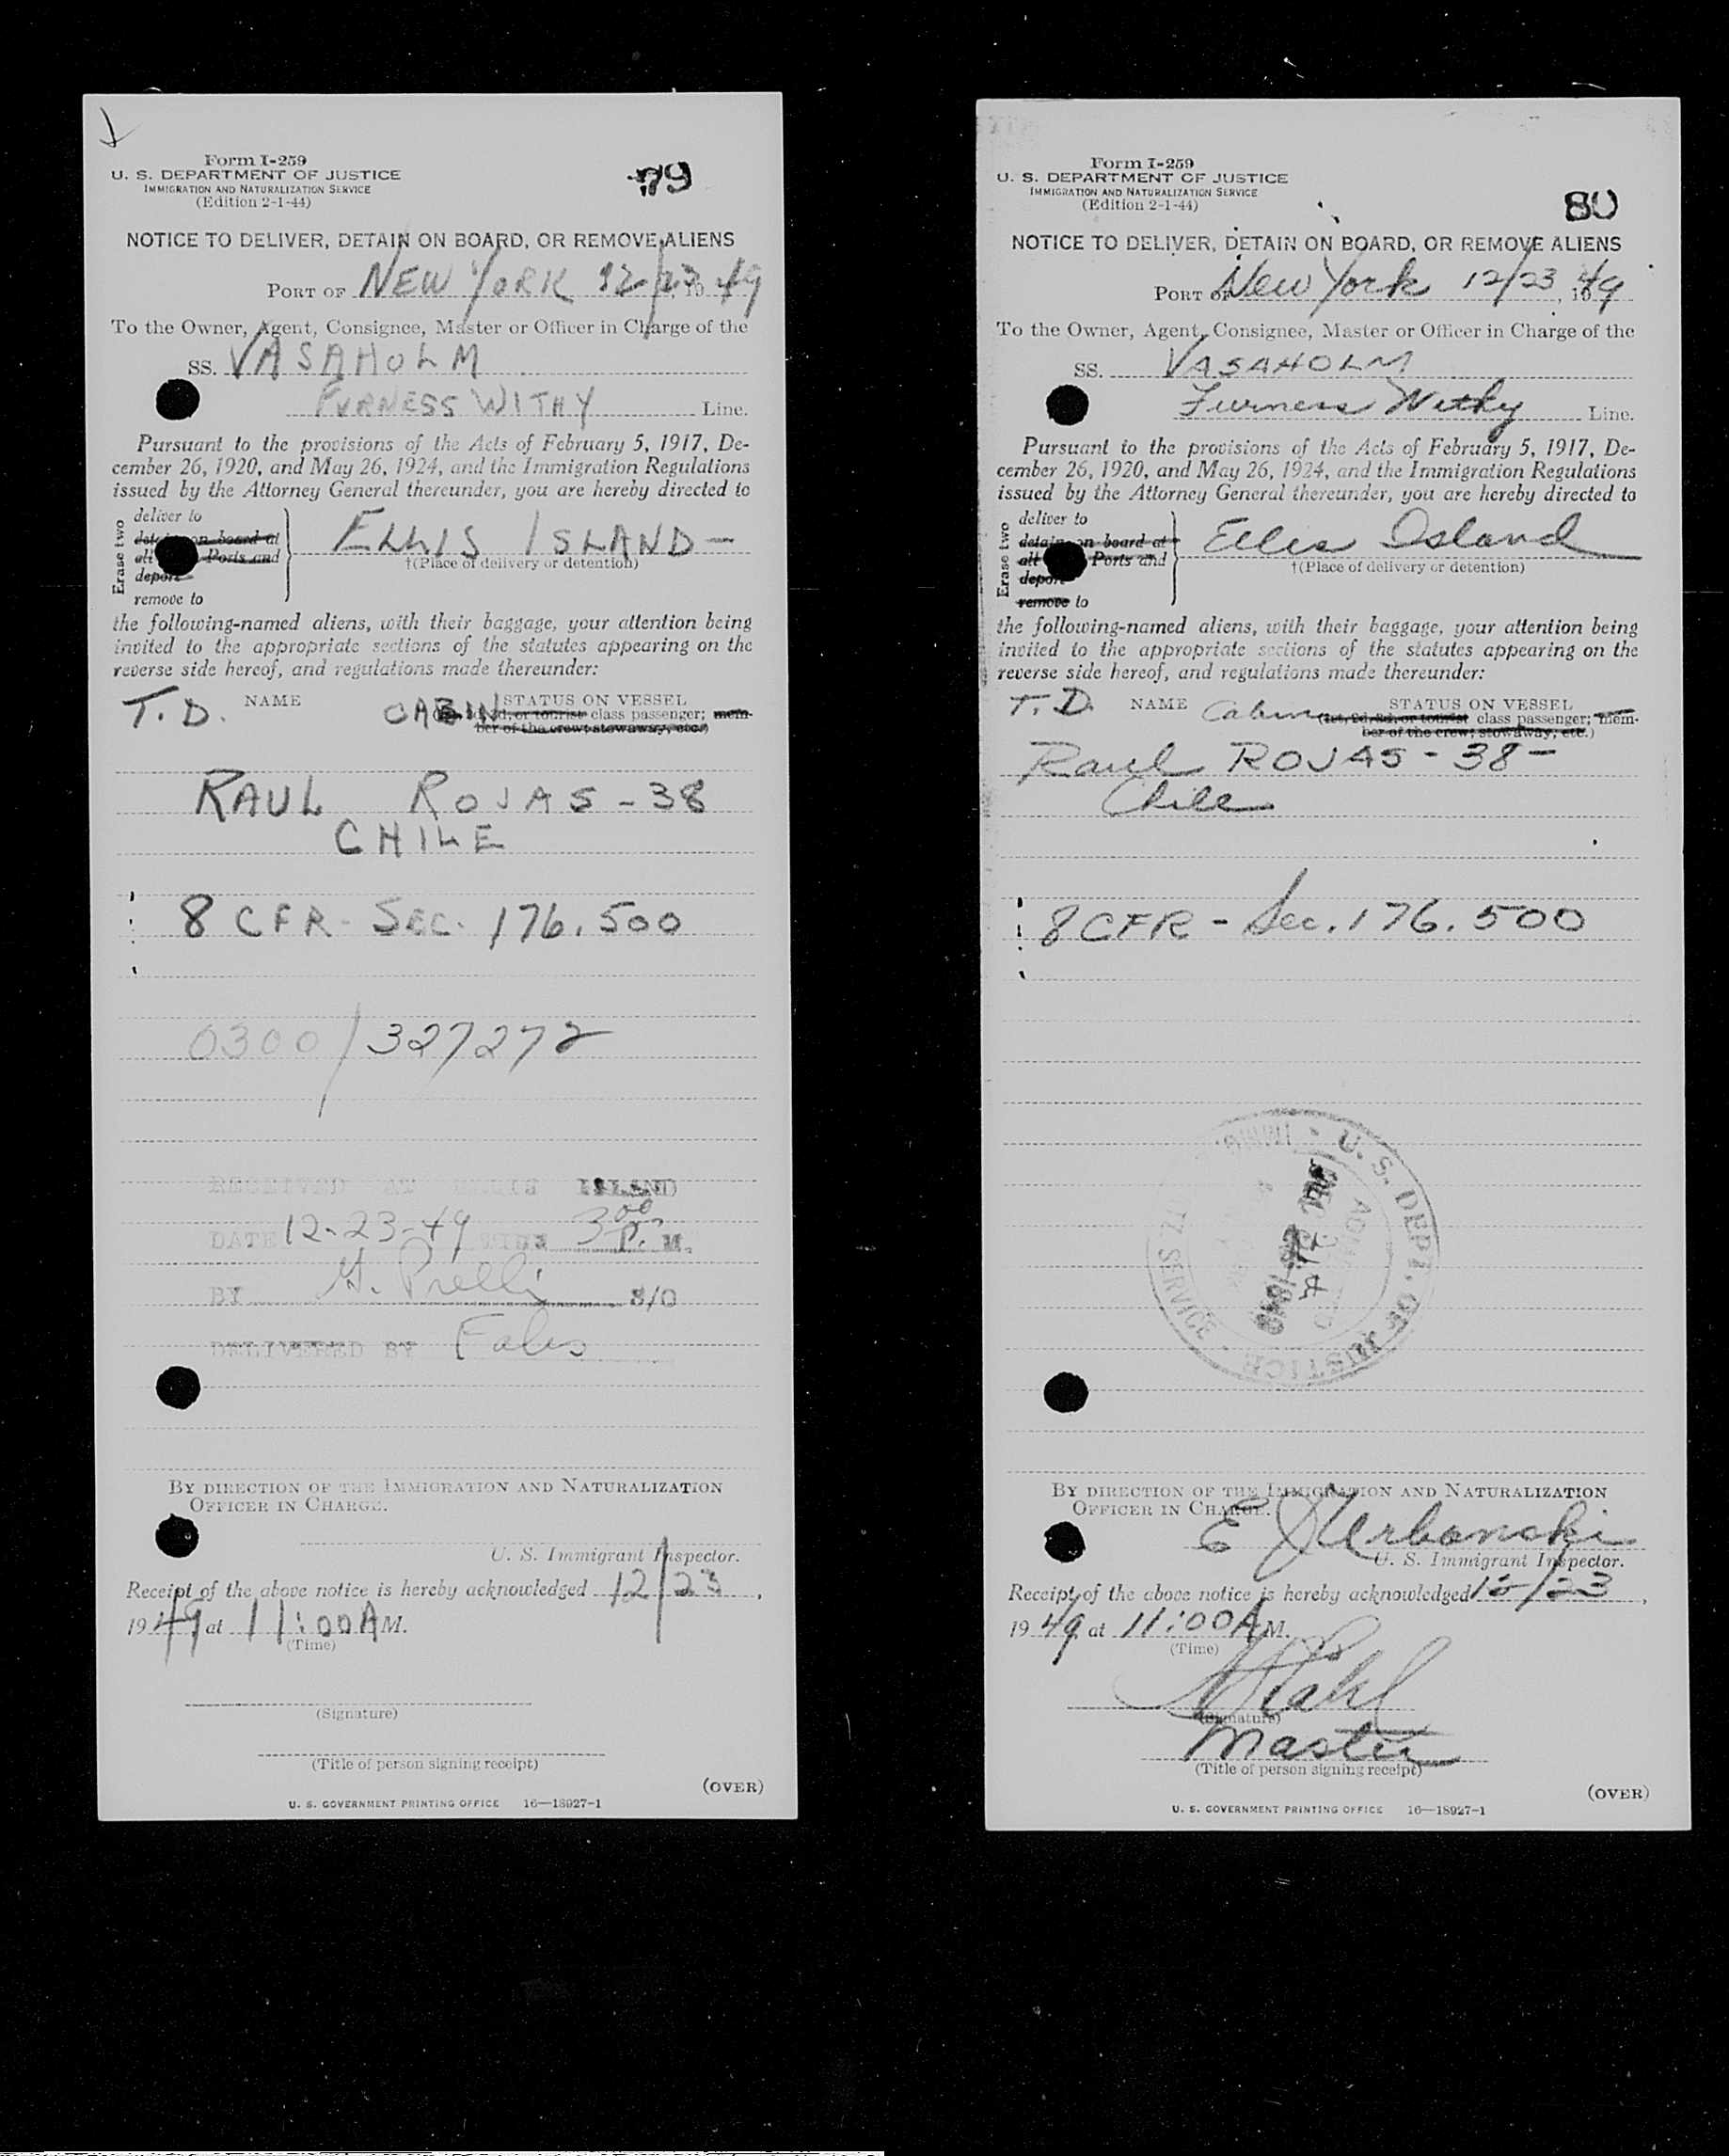 Form I-259
U. S. DEPARTMENT OF JUSTICE
IMMIGRATION AND NATURALIZATION SERVICE
(Edition 2-1-44)
79
NOTICE TO DELIVER, DETAIN ON BOARD, OR REMOVE ALIENS
PORT OF NEW YORK 12/23, 1949
To the Owner, Agent, Consignee, Master or Officer in Charge of the
SS. VASAHOLM
FURNESS WITHY Line.
Pursuant to the provisions of the Acts of February 5, 1917, De-
cember 26, 1920, and May 26, 1924, and the Immigration Regulations
issued by the Attorney General thereunder, you are hereby directed to
Erase two
deliver to
detain on board at
all Ports and
deport
remove to
ELLIS ISLAND -
†(Place of delivery or detention)
the following-named aliens, with their baggage, your attention being
invited to the appropriate sections of the statutes appearing on the
reverse side hereof, and regulations made thereunder:
T. D. NAME CABIN STATUS ON VESSEL
2d, 3d, or tourist class passenger; mem-
ber of the crew; stowaway, etc.)
RAUL ROJAS - 38
CHILE
8 CFR - SEC. 176.500
0300/327272
RECEIVED AT ELLIS ISLAND
DATE 12-23-49 TIME 3 00 P. M.
BY S/O
DELIVERED BY
BY DIRECTION OF THE IMMIGRATION AND NATURALIZATION
OFFICER IN CHARGE.
U. S. Immigrant Inspector.
Receipt of the above notice is hereby acknowledged 12/23,
1949, at 11:00 A M.
(Time)
(Signature)
(Title of person signing receipt)
(OVER)
U. S. GOVERNMENT PRINTING OFFICE 16—18927-1
Form I-259
U. S. DEPARTMENT OF JUSTICE
IMMIGRATION AND NATURALIZATION SERVICE
(Edition 2-1-44)
80
NOTICE TO DELIVER, DETAIN ON BOARD, OR REMOVE ALIENS
PORT OF New York 12/23, 1949
To the Owner, Agent, Consignee, Master or Officer in Charge of the
SS. VASAHOLM
Furness Withy Line.
Pursuant to the provisions of the Acts of February 5, 1917, De-
cember 26, 1920, and May 26, 1924, and the Immigration Regulations
issued by the Attorney General thereunder, you are hereby directed to
Erase two
deliver to
detain on board at
all Ports and
deport
remove to
Ellis Island
†(Place of delivery or detention)
the following-named aliens, with their baggage, your attention being
invited to the appropriate sections of the statutes appearing on the
reverse side hereof, and regulations made thereunder:
T. D. NAME Cabin STATUS ON VESSEL
(1st, 2d, 3d, or tourist class passenger; mem-
ber of the crew; stowaway, etc.)
Raul ROJAS - 38 -
Chile
8 CFR - Sec. 176.500
U. S. DEPT. OF JUSTICE
SERVICE
BY DIRECTION OF THE IMMIGRATION AND NATURALIZATION
OFFICER IN CHARGE.
E J Urbanski
U. S. Immigrant Inspector.
Receipt of the above notice is hereby acknowledged 12/23,
1949, at 11:00 A M.
(Time)
(Signature)
Master
(Title of person signing receipt)
(OVER)
U. S. GOVERNMENT PRINTING OFFICE 16—18927-1